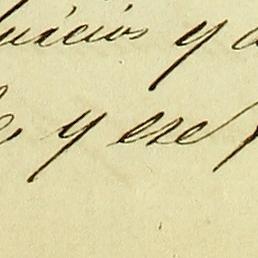 uicios y a
y ese